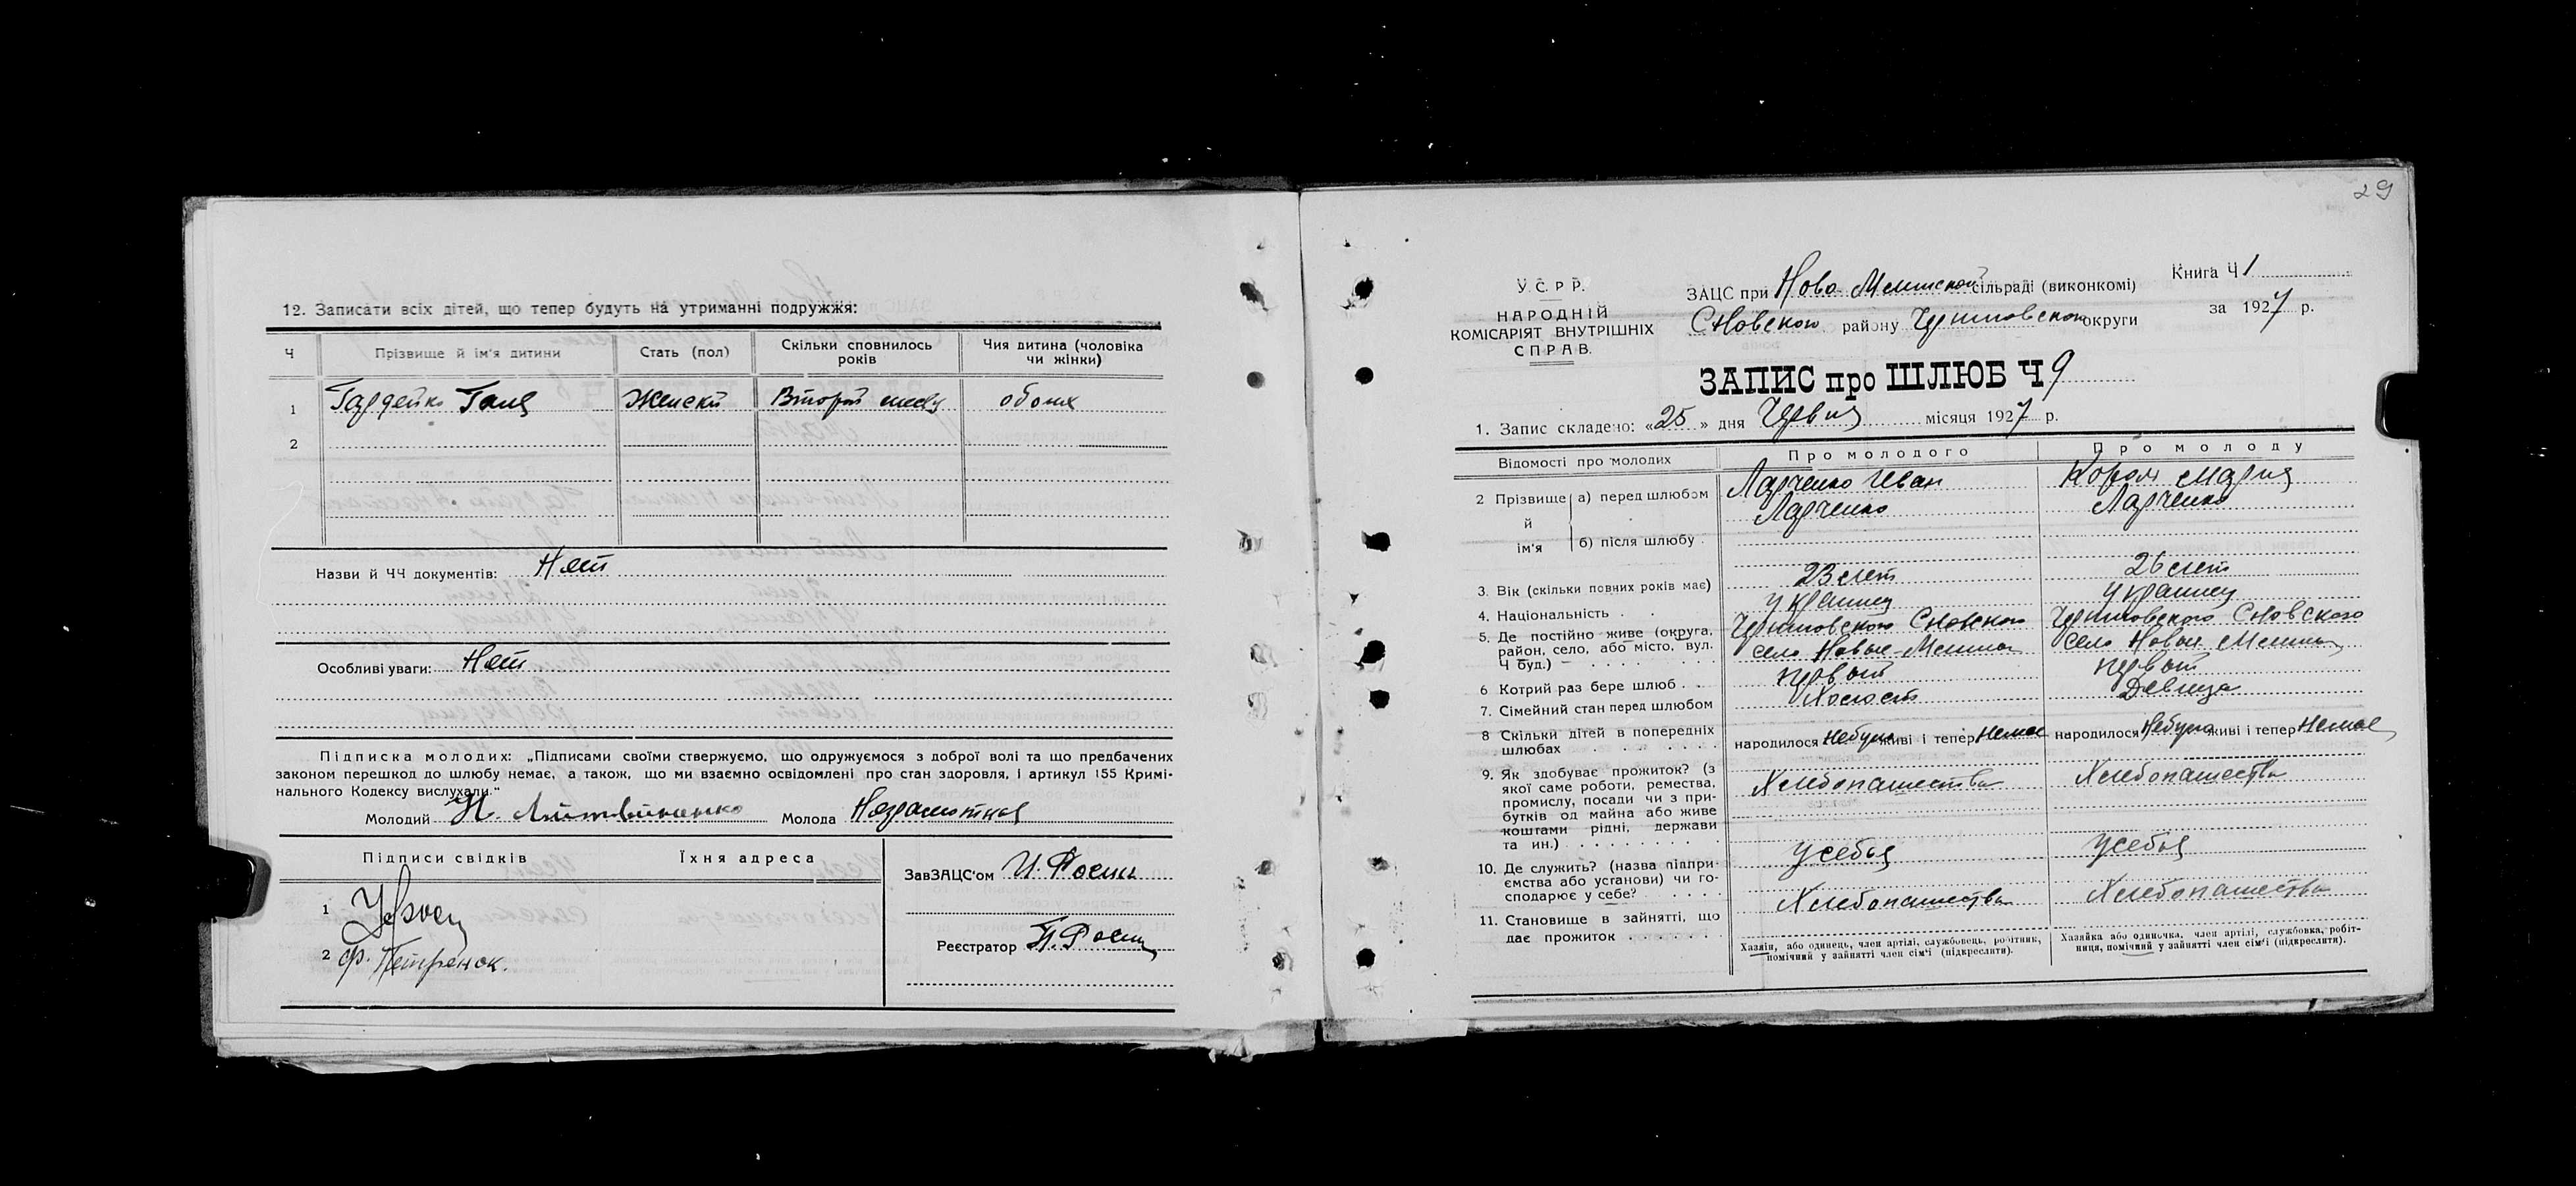 12. Записати всіх дітей, що тепер будуть на утриманні подружжя:
Ч Прізвище й ім'я дитини Стать (пол) Скільки сповнилось років Чия дитина (чоловіка чи жінки)
1 Галя Женски Второй обоих
2
Назви й ЧЧ документів: Нет
Особливі уваги: Нет
Підписка молодих: „Підписами своїми стверджуємо, що одружуємося з доброї волі та що предбачених
законом перешкод до шлюбу немає, а також, що ми взаємно освідомлені про стан здоровля, і артикул 155 Кримі-
нального Кодексу вислухали."
Молодий Н. Литвиненко Молода Неграмотная
Підписи свідків Їхня адреса
ЗавЗАЦС'ом
1
2 Ф. Петренок.
Реєстратор
29
У.С.Р.Р.
НАРОДНІЙ
КОМІСАРІЯТ ВНУТРІШНІХ
СПРАВ.
ЗАЦС при Ново-Менской сільраді (виконкомі)
Сновского району Черниговской округи
Книга Ч 1
за 1927 р.
ЗАПИС про ШЛЮБ Ч 9
1. Запис складено: «25» дня Червня місяця 1927 р.
Відомості про молодих Про молодого Про молоду
2 Прізвище й ім'я а) перед шлюбом Ларченко Иван Король Мария
Ларченко Ларченко
б) після шлюбу
3. Вік (скільки повних років має) 23 лет 26 лет
4. Національність . . украинец украинец
5. Де постійно живе (округа, Черниговского Сновского Черниговского Сновского
район, село, або місто, вул. село Новые-Мени село Новые Мени
Ч буд.)
6 Котрий раз бере шлюб . . первый первый
7. Сімейний стан перед шлюбом Холост Девица
8 Скільки дітей в попередніх
шлюбах народилося небуло живі і тепер Немає народилося Небуло живі і тепер Немає
9. Як здобуває прожиток? (з Хлебопашество Хлебопашество
якої саме роботи, ремества,
промислу, посади чи з при-
бутків од майна або живе
коштами рідні, держави
та ин.)
10. Де служить? (назва підпри- у себя у себя
ємства або установи) чи го-
сподарює у себе?
11. Становище в зайнятті, що Хлебопашество Хлебопашество
дає прожиток
Хазяїн, або одинець, член артілі, службовець, робітник,
помічний у зайнятті член сім'ї (підкреслити).
Хазяйка або одиночка, член артілі, службовка, робіт-
ниця, помічний у зайнятті член сім'ї (підкреслити).